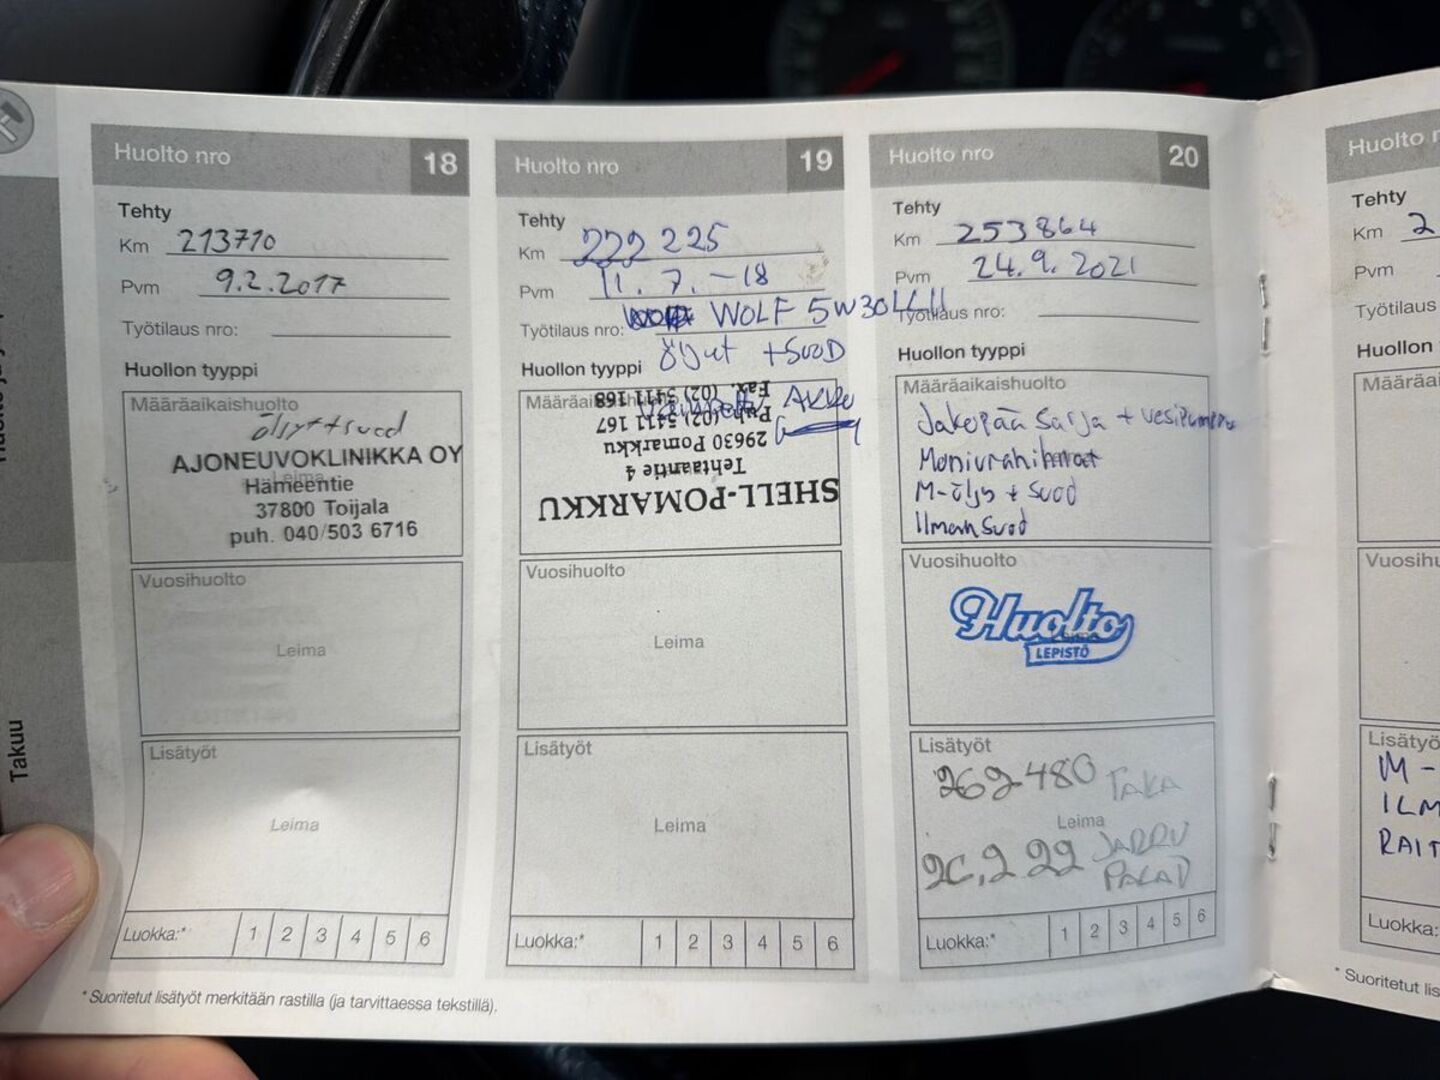 Huolto nro 18
Tehty
Km 213710
Pvm 9.2.2017
Työtilaus nro:
Huollon tyyppi
Määräaikaishuolto
öljyt+suod
AJONEUVOKLINIKKA OY
Leima
Hämeentie
37800 Toijala
puh. 040/503 6716
Vuosihuolto
Leima
Lisätyöt
Leima
Luokka:* 1 2 3 4 5 6
* Suoritetut lisätyöt merkitään rastilla (ja tarvittaessa tekstillä).
Huolto nro 19
Tehty
Km 222 225
Pvm 11. 7. -18
Työtilaus nro: WOLF 5W30
Öljyt +SUOD
Huollon tyyppi
AKKU
SHELL-POMARKKU
Tehtaantie 4
29630 Pomarkku
Puh. (02) 5411 167
Fax. (02) 5411 168
Vuosihuolto
Leima
Lisätyöt
Leima
Luokka:* 1 2 3 4 5 6
Huolto nro 20
Tehty
Km 253864
Pvm 24.9.2021
Työtilaus nro:
Huollon tyyppi
Määräaikaishuolto
Jakopää sarja + vesipumppu
Moniurahihnat
M-öljy + suod
Ilmansuod
Vuosihuolto
Huolto
LEPISTÖ
Lisätyöt
262480 TAKA
Leima
26.2.22 JARRU
PALAT
Luokka:* 1 2 3 4 5 6
Huolto
Tehty
Km 2
Pvm
Työtilaus
Huollon
Lisätyö
M-
ILM
RAIT
Luokka:
* Suoritetut
Takuu